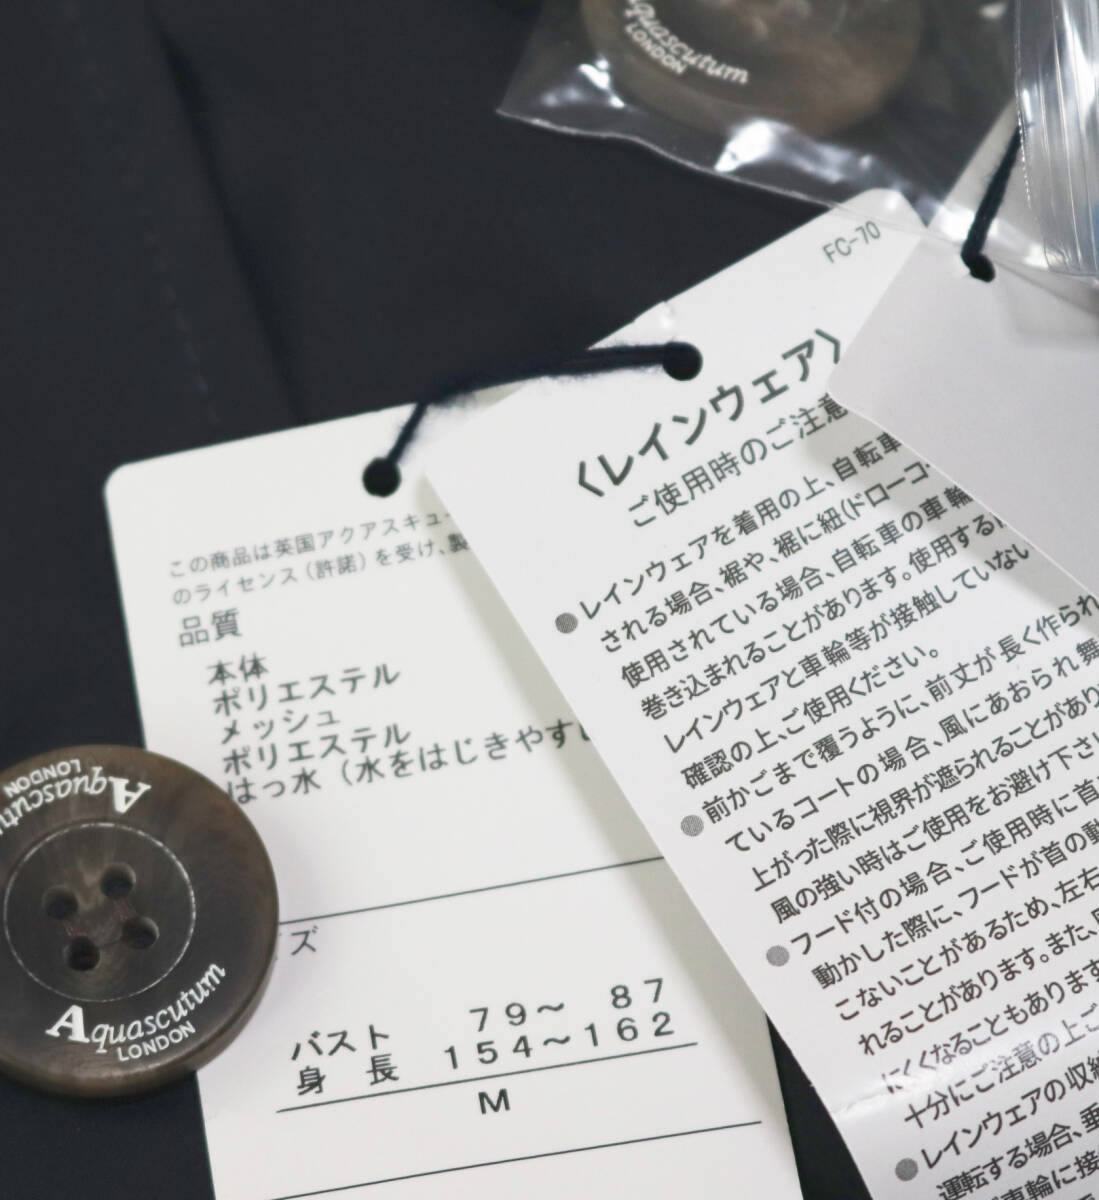 Aquascutum
LONDON
FC-70
〈レインウェア〉
ご使用時のご注意
●レインウェアを着用の上、自転車
される場合、裾や、裾に紐(ドローコー
使用されている場合、自転車の車輪
巻き込まれることがあります。使用する
レインウェアと車輪等が接触していない
確認の上、ご使用ください。
●前かごまで覆うように、前丈が長く作られ
ているコートの場合、風にあおられ舞
上がった際に視界が遮られることがあり
風の強い時はご使用をお避け下さい
●フード付の場合、ご使用時に首
動かした際に、フードが首の動
こないことがあるため、左右
れることがあります。また、
にくくなることもあります
十分にご注意の上ご
●レインウェアの収納
運転する場合、垂
車輪に接
この商品は英国アクアスキュー
のライセンス(許諾)を受け、製
品質
本体
ポリエステル
メッシュ
ポリエステル
はっ水(水をはじきやすい
イズ
バスト 79〜 87
身 長 154〜162
M
Aquascutum
LONDON
Aquascutum
LONDON